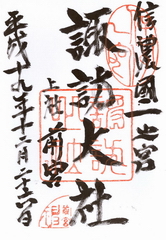 信濃國一之宮
諏訪大社
上社前宮
平成十九年十二月二十六日